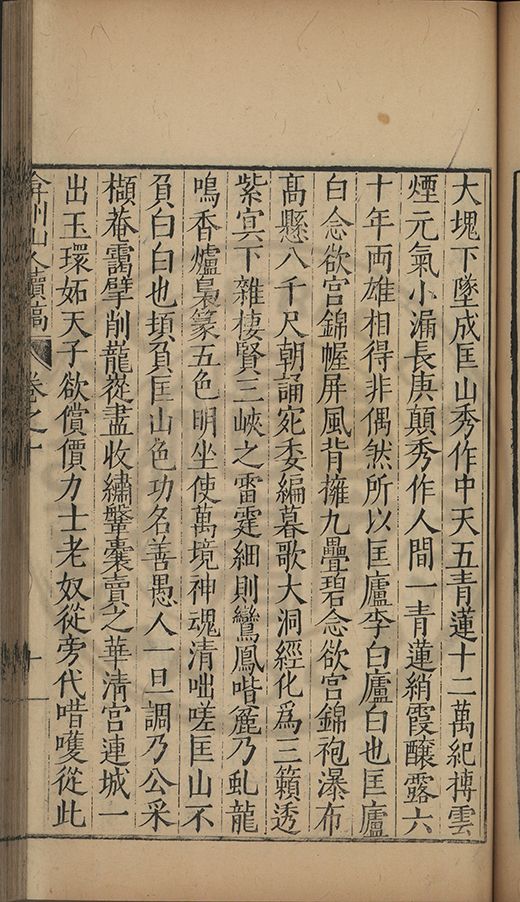 大塊下墜成匡山秀作中天五青蓮十二萬紀摶雲
煙元氣小漏長庚顛秀作人間一青蓮綃霞釀露六
十年両雄相得非偶然所以匡廬李白廬白也匡廬
白念欲宫錦幄屏風背擁九疊碧念欲宫錦袍瀑布
高懸八千尺朝誦宛委編暮歌大洞經化爲三籟透
紫冥下雜棲賢三峽之雷霆細則鸞鳳喈麄乃虬龍
鳴香爐裊篆五色明坐使萬境神魂清咄嗟匡山不
負白白也頊負匡山色功名善愚人一旦調乃公采
擷菴靄擘削巃嵸盡收繡鞶囊賣之華清宫連城一
出玉環妬天子欲償價力士老奴從旁代唶嚄從此
弇州山人續稿
卷之十
十